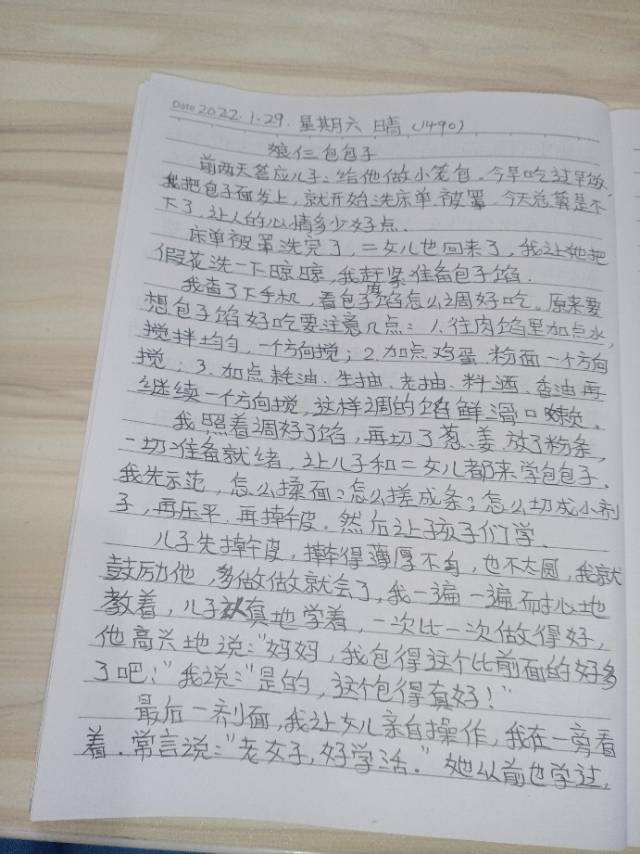 Date 2022.1.29. 星期六 晴 (1490)
娘仨包包子
前两天答应儿子:给他做小笼包。今早吃过早饭
我把包子面发上,就开始洗床单被罩,今天总算是不
下了,让人的心情多少好点。
床单被罩洗完了,二女儿也回来了,我让她把
假花洗一下晾晾,我赶紧准备包子馅。
我查了下手机,看包子馅怎么调好吃。原来要
想包子馅好吃要注意几点:1.往肉馅里加点水,
搅拌均匀,一个方向搅;2.加点鸡蛋.粉面一个方向
搅;3.加点耗油、生抽、老抽、料酒、香油再
继续一个方向搅,这样调的馅鲜滑口嫩。
我照着调好了馅,再切了葱、姜放了粉条,
一切准备就绪,让儿子和二女儿都来学包包子。
我先示范,怎么揉面;怎么搓成条;怎么切成小剂
子,再压平.再擀皮。然后让孩子们学.
儿子先擀皮,擀得薄厚不匀,也不太圆,我就
鼓励他,多做做就会了,我一遍一遍耐心地
教着,儿子认真地学着,一次比一次做得好,
他高兴地说:“妈妈,我包得这个比前面的好多
了吧!”我说:“是的,这个包得真好!”
最后一剂面,我让女儿亲自操作,我在一旁看
着.常言说:“老女子,好学活。”她以前也学过,